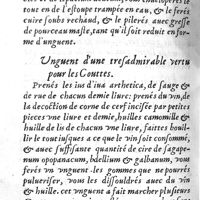 toux en de l'estoupe trampée en eau, & le ferés
cuire soubs rechaud, & le pilerés auec gresse
de pourceau masle, tant qu'il soit reduit en for-
me d'vnguent.
Vnguent d'vne tresadmirable vertu
pour les Gouttes.
Prenés le ius d'iua arthetica, de sauge &
de rue de chacun demie liure; prenés du vin, de
la decoction de corne de cerf incisée par petites
pieces vne liure et demie, huilles camomille &
huille de lis de chacun vne liure, faittes bouil-
lir le tout iusques a ce que le vin soit consommé,
& auec suffisante quantité de cire de sagape-
num opopanacum, bdellium & galbanum, vous
ferés vn vnguent les gommes que ne pourrés
pulueriser, vous les dissouldrés auec du vin
& huille. cet vnguent a fait marcher plusieurs